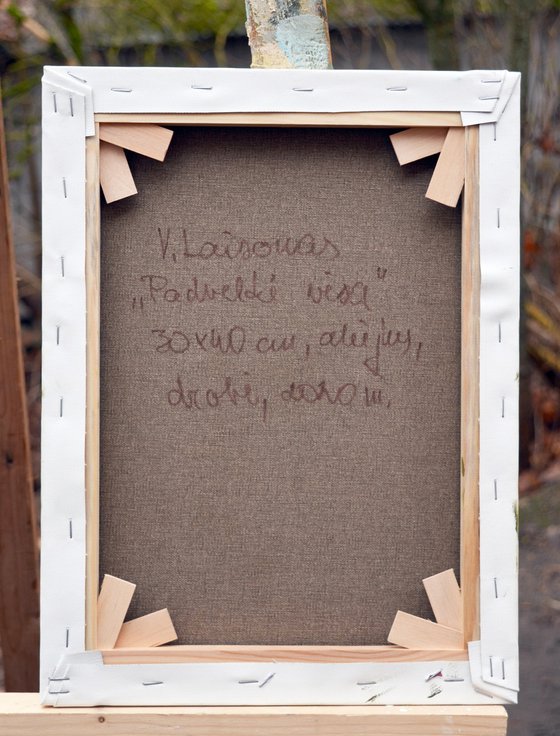 V. Laisonas
„Padvelki visą"
30x40 cm, aliejus,
drobė, 2020 m.